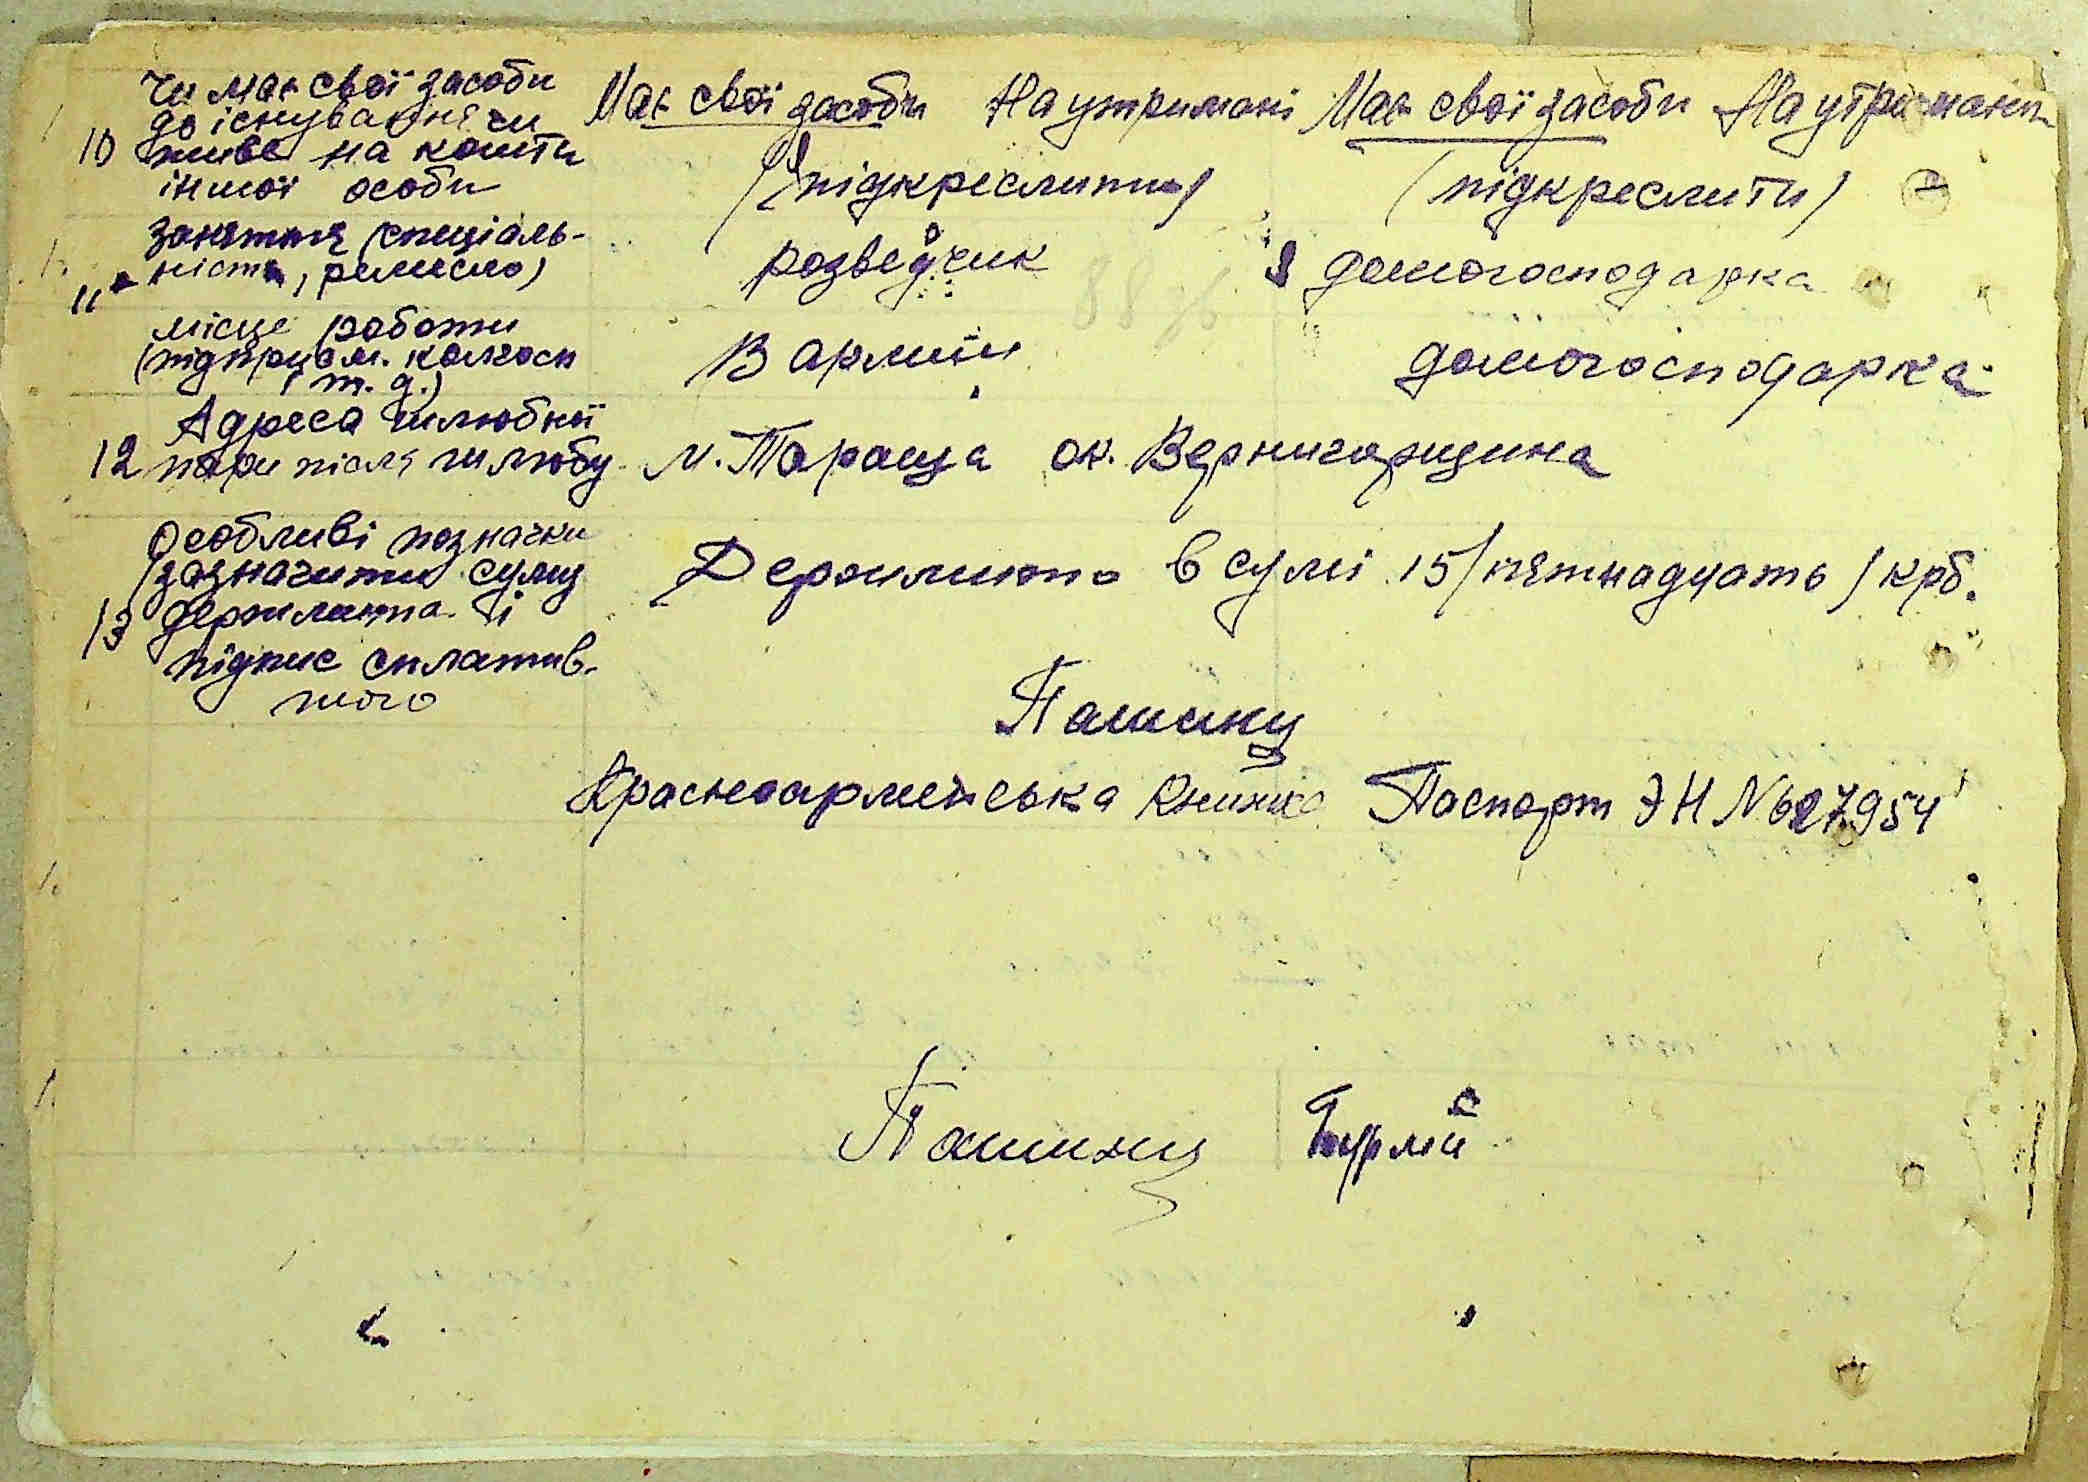 10 Чи має свої засоби
до існування чи
живе на кошти
іншої особи
Має свої засоби На утримані Має свої засоби На утримані
(підкреслити) (підкреслити)
11 заняття (спеціаль-
ність, ремесло)
розведчик домогосподарка
місце роботи
(підприєм. колгосп
і т. д.)
В армии домогосподарка
12 Адреса шлюбної
пари після шлюбу
м. Тараща ок. Вернигорщина
13 Особливі позначки
(зазначити суму
держмита і
підпис сплатив-
шого
Держмито в сумі 15 (пятнадцать) крб.
Пашинц
Красноармейська книжка Паспорт ЭН № 627954
Пашинц Бурлй